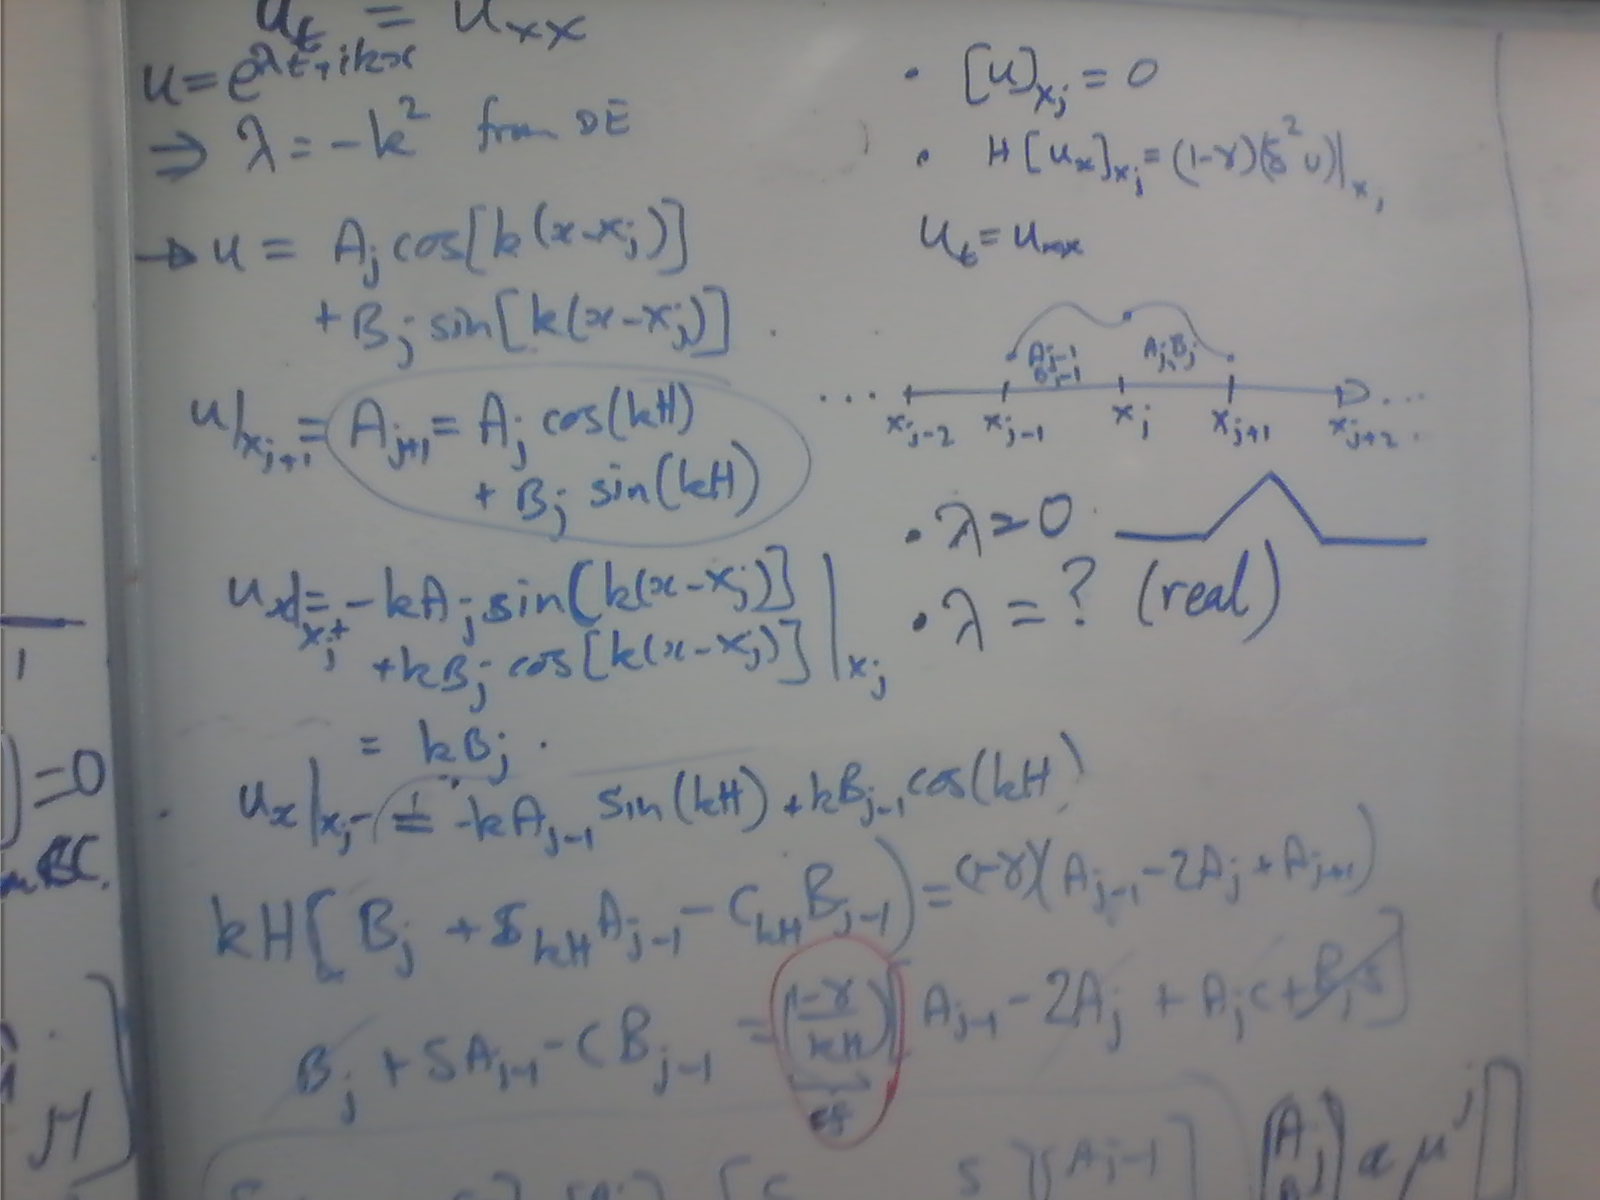 u_t = u_xx
u = e^{λt+ikx}
⇒ λ = -k² from DE
→ u = A_j cos[k(x-x_j)]
+ B_j sin[k(x-x_j)]
u|_{x_{j+1}} = A_{j+1} = A_j cos(kH)
+ B_j sin(kH)
u_x|_{x_j^+} = -kA_j sin[k(x-x_j)]
+kB_j cos[k(x-x_j)]|_{x_j}
= kB_j .
u_x|_{x_j^-} = -kA_{j-1} sin(kH) + kB_{j-1} cos(kH)
kH[B_j + S_{kH} A_{j-1} - C_{kH} B_{j-1}) = (1-γ)(A_{j-1} - 2A_j + A_{j+1})
B_j + SA_{j-1} - CB_{j-1} = (1-γ / kH)[A_{j-1} - 2A_j + A_j c + B_j s]
• [u]_{x_j} = 0
• H[u_x]_{x_j} = (1-γ)(δ²u)|_{x_j}
u_t = u_xx
A_{j-1} B_{j-1}
A_j, B_j
... x_{j-2} x_{j-1} x_j x_{j+1} x_{j+2} ...
• λ = 0
• λ = ? (real)
1
)=0
BC.
H
A_{j-1}
A_j
α μ^j